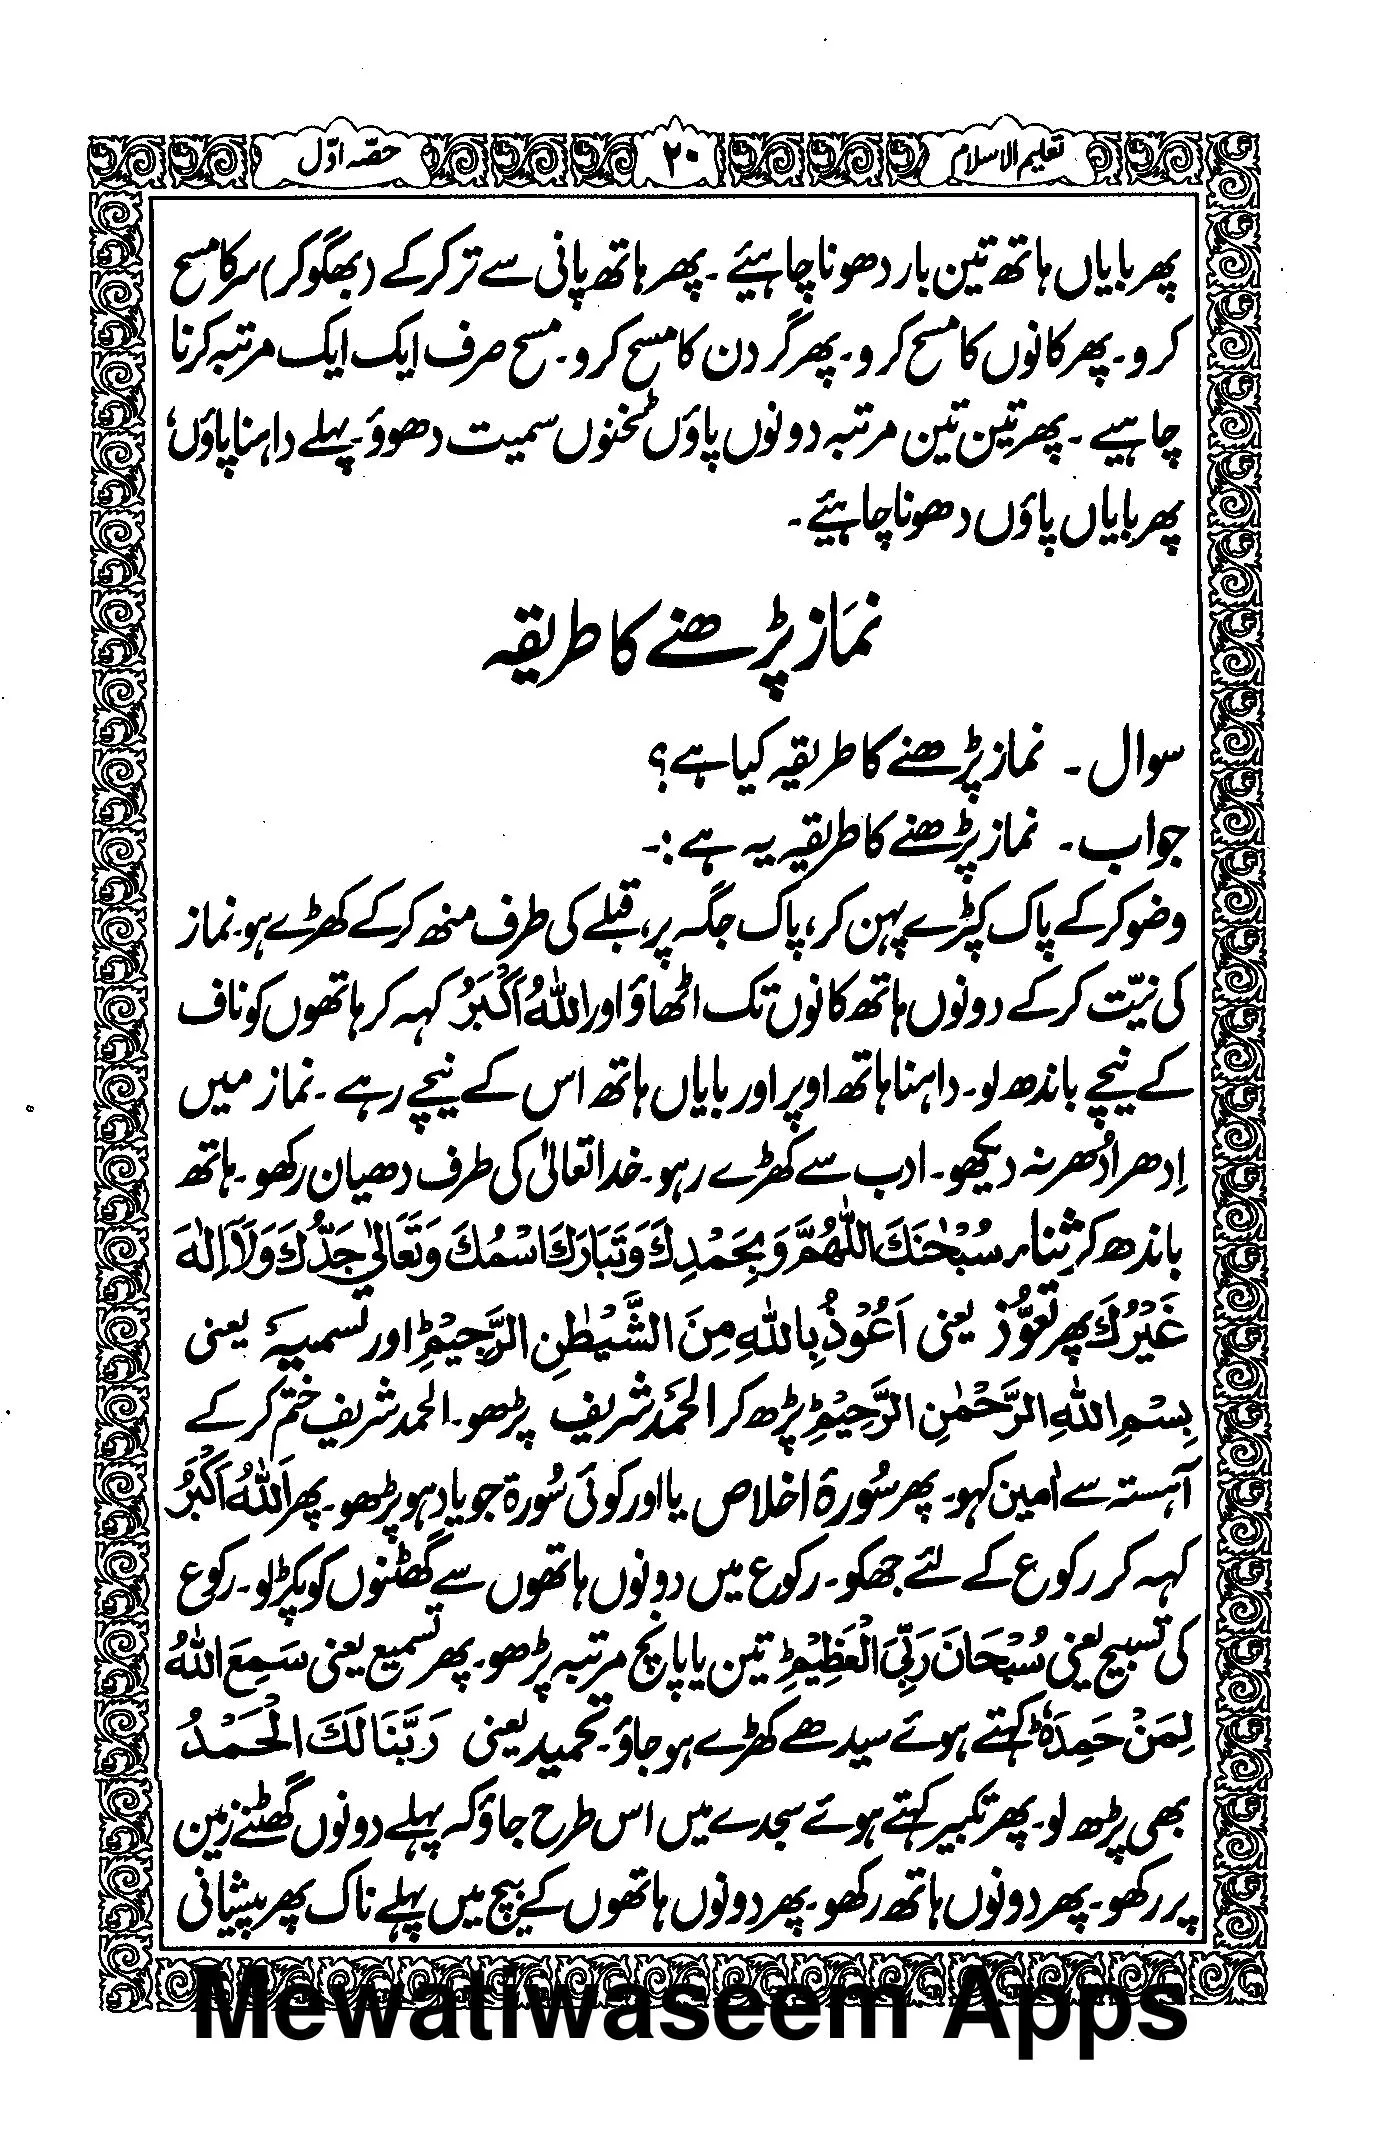 تعلیم الاسلام
۲۰
حصّہ اوّل
پھر بایاں ہاتھ تین بار دھونا چاہئیے ۔ پھر ہاتھ پانی سے تر کر کے (بھگو کر) سر کا مسح
کرو ۔ پھر کانوں کا مسح کرو ۔ پھر گردن کا مسح کرو ۔ مسح صرف ایک ایک مرتبہ کرنا
چاہیے ۔ پھر تین تین مرتبہ دونوں پاؤں ٹخنوں سمیت دھوؤ ۔ پہلے داہنا پاؤں،
پھر بایاں پاؤں دھونا چاہئیے ۔
نماز پڑھنے کا طریقہ
سوال ۔ نماز پڑھنے کا طریقہ کیا ہے؟
جواب ۔ نماز پڑھنے کا طریقہ یہ ہے :۔
وضو کر کے پاک کپڑے پہن کر، پاک جگہ پر، قبلے کی طرف منھ کر کے کھڑے ہو ۔ نماز
کی نیّت کر کے دونوں ہاتھ کانوں تک اٹھاؤ اور اَللّٰہُ اَکْبَرُ کہہ کر ہاتھوں کو ناف
کے نیچے باندھ لو ۔ داہنا ہاتھ اوپر اور بایاں ہاتھ اس کے نیچے رہے ۔ نماز میں
اِدھر اُدھر نہ دیکھو ۔ ادب سے کھڑے رہو ۔ خدا تعالیٰ کی طرف دھیان رکھو ۔ ہاتھ
باندھ کر ثناء سُبْحٰنَكَ اللّٰهُمَّ وَبِحَمْدِكَ وَتَبَارَكَ اسْمُكَ وَتَعَالٰی جَدُّكَ وَلَآ اِلٰهَ
غَیْرُكَ پھر تعوُّذ یعنی اَعُوْذُ بِاللّٰهِ مِنَ الشَّیْطٰنِ الرَّجِیْمِ ؕ اور تسمیہ یعنی
بِسْمِ اللّٰهِ الرَّحْمٰنِ الرَّحِیْمِ ؕ پڑھ کر الحَمْد شریف پڑھو ۔ الحمد شریف ختم کر کے
آہستہ سے اٰمین کہو ۔ پھر سُورۂ اخلاص یا اور کوئی سُورۃ جو یاد ہو پڑھو ۔ پھر اَللّٰہُ اَکْبَرُ
کہہ کر رکوع کے لئے جھکو ۔ رکوع میں دونوں ہاتھوں سے گھٹنوں کو پکڑ لو ۔ رکوع
کی تسبیح یعنی سُبْحَانَ رَبِّیَ الْعَظِیْمِ ؕ تین یا پانچ مرتبہ پڑھو ۔ پھر تسمیع یعنی سَمِعَ اللّٰهُ
لِمَنْ حَمِدَهٗ ؕ کہتے ہوئے سیدھے کھڑے ہو جاؤ ۔ تحمید یعنی رَبَّنَا لَكَ الْحَمْدُ
بھی پڑھ لو ۔ پھر تکبیر کہتے ہوئے سجدے میں اس طرح جاؤ کہ پہلے دونوں گھٹنے زمین
پر رکھو ۔ پھر دونوں ہاتھ رکھو ۔ پھر دونوں ہاتھوں کے بیچ میں پہلے ناک پھر پیشانی
Mewatiwaseem Apps